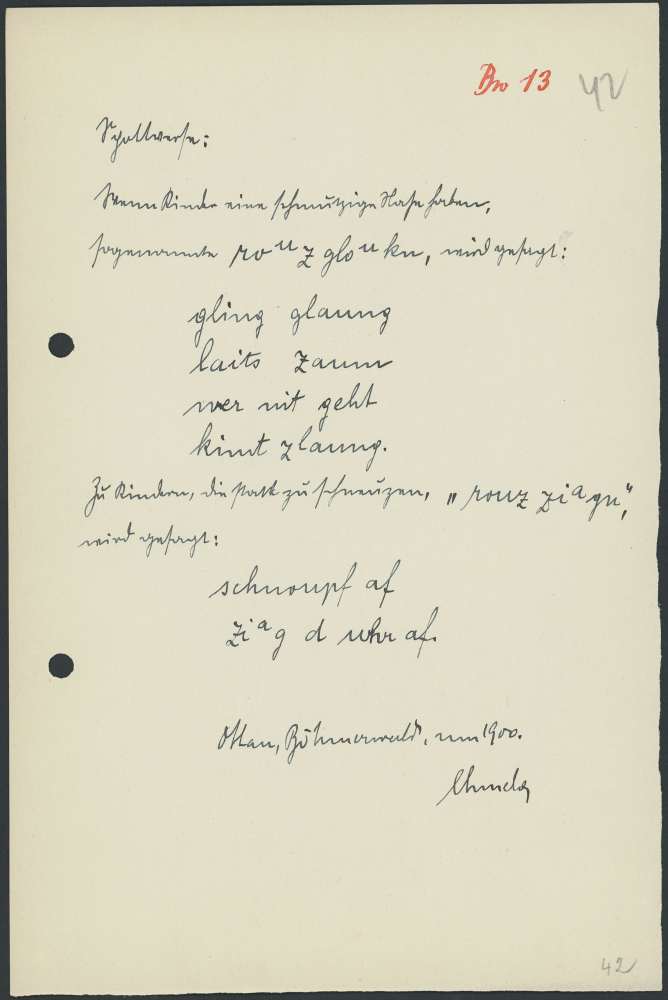 Bw 13 42
Spottverse:
Wenn Kinder eine schmutzige Nase haben,
sogenannte roᵘz gloᵘkn, wird gesagt:
gling glaung
laits zamm
wer nit geht
kimt zlaung.
Zu Kindern, die statt zu schneuzen, „rouz ziᵃgn“,
wird gesagt:
schnoupf af
ziᵃg d uhr af.
Ottau, Böhmerwald, um 1900.
42